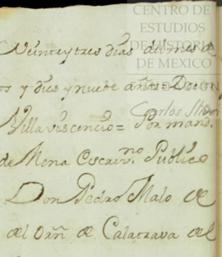 CENTRO DE
ESTUDIOS
DE HISTORIA
DE MEXICO
Veinte y tres días del mes de
y diez y nueve años = Don
Villavisencio = Por mano.
de Mena Escrivno. Público
Don Pedro Malo de
del Orñ de Calatrava del